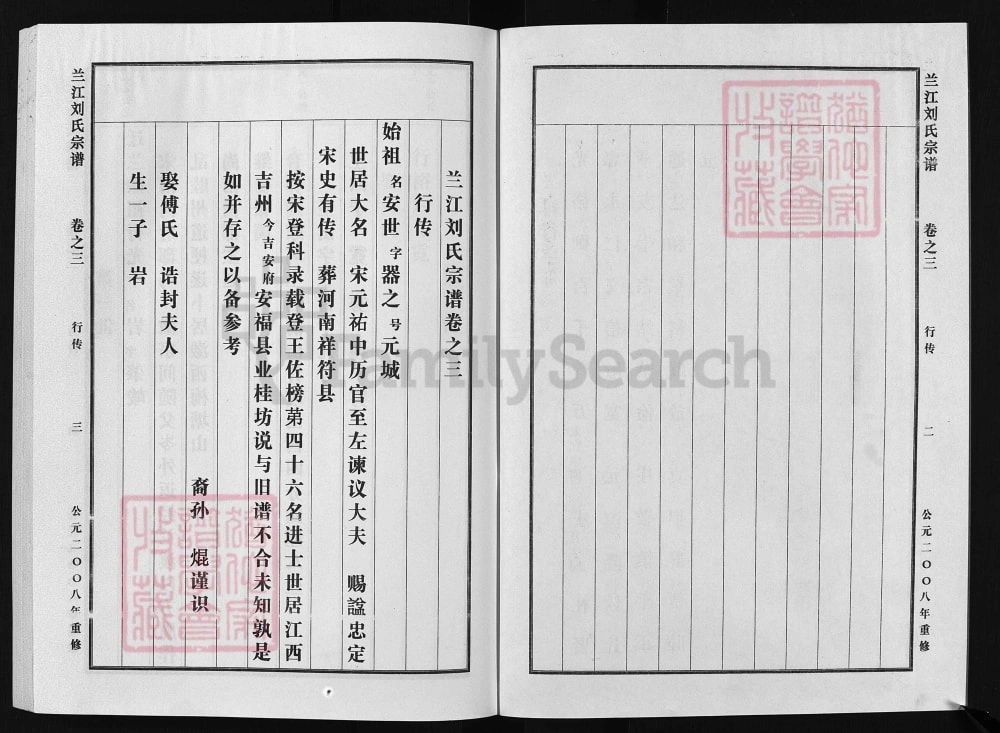 兰江刘氏宗谱 卷之三 行传 二 公元二〇〇八年重修
兰江刘氏宗谱卷之三
行传
始祖 名 安世 字 器之 号 元城
世居大名 宋元祐中历官至左谏议大夫 赐諡忠定
宋史有传 葬河南祥符县
按宋登科录载登王佐榜第四十六名进士世居江西
吉州 今吉安府 安福县业桂坊说与旧谱不合未知孰是
如并存之以备参考
裔孙 焜谨识
娶傅氏 诰封夫人
生一子 岩
兰江刘氏宗谱 卷之三 行传 三 公元二〇〇八年重修
FamilySearch